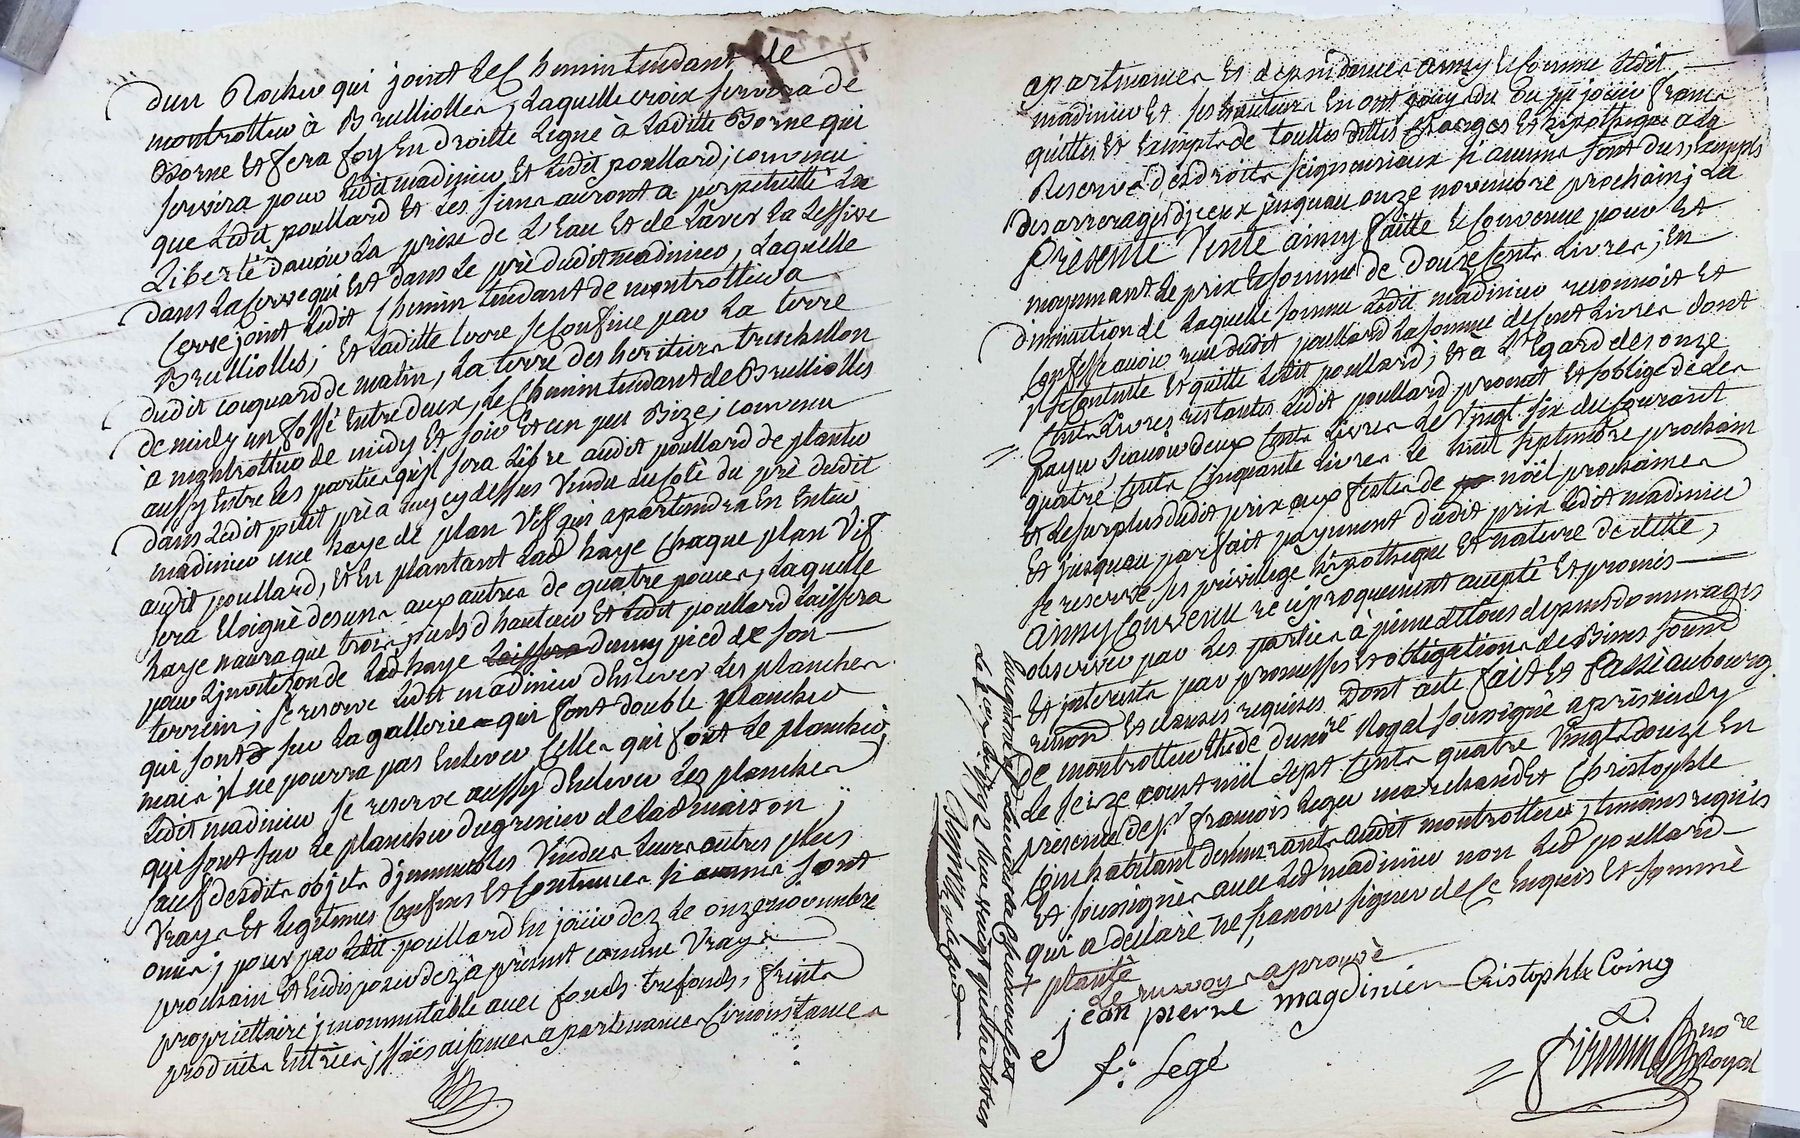 dun Rocher qui joint le Chemin tendant de
montrottier à Brulliolles, laquelle croix servira de
Borne et fera foy En droitte ligne à laditte Borne qui
servira pour ledit madinier et ledit poullard; convenu
que ledit poullard et les siens auront a perpetuitté la
Liberté davoir la prise de l'Eau et de laver la Lessive
dans la serve qui Est dans le prè dudit madinier, laquelle
serve joint ledit Chemin tendant de montrottier a
Brulliolles; et laditte terre se Confine par la terre
dudit coquard de matin, la terre des heritiers
de midy un fossé Entre deux, le Chemin tendant de Brulliolles
à montrottier de midy et soir et un peu Bize; convenu
aussy Entre les parties qu'jl sera Libre audit poullard de planter
dans ledit petit prè a luy cy dessus Vendu du Cotè du prè dudit
madinier une haye de plan Vif qui apartiendra En Entier
audit poullard, et En plantant lad haye Chaque plan Vif
sera Eloignè des uns aux autres de quatre pouces, laquelle
haye naura que trois pieds d'hauteur et ledit poullard laissera
pour de lad haye laissera dun pied de son
terrein; se reserve ledit madinier d'Enlever les planches
qui sont sur la gallerie qui font double plancher
mais jl ne pourra pas Enlever Celles qui font le plancher,
ledit madinier se reserve aussy d'Enlever les planches
qui sont sur le plancher du grenier de lad maison;
sauf desdits objets d'jmmeubles Vendus leurs autres plus
Vrays et legitimes Confins et Contenues si aucuns sont
omis; pour par ledit poullard En joüir dez le onze novembre
prochain et En disposer dez à present comme Vray
propriettaire jncommutable avec fonds, trefonds, fruits
produits Entrées jssües aisances apartenances Circonstances
apartenances et dependances ainsy et Comme ledit
madinier et ses hauteurs En ont joüy du ou pû joüir francs
quittes et Exempts de touttes dettes Charges et hipothèques a la
Reserve des droits seigneuriaux si aucuns sont dus, Exempts
des arrerages djceux jusquau onze novembre prochain; La
Presente Vente ainsy faitte et Convenue pour et
moyennant le prix et somme de Douze Cents Livres; En
diminution de laquelle somme ledit madinier reconnoit et
Confesse avoir reçu dudit poullard la somme de Cent Livres dont
jl se Contente et quitte ledit poullard; et à L'Egard des onze
Cents Livres restantes ledit poullard promet et soblige de les
payer scavoir deux Cents Livres le Vingt six du Courant
quatre Cents Cinquante Livres le huit septembre prochain
et le surplus dudit prix aux festes de noël prochaines
et jusquau parfait payement dudit prix ledit madinier
se reserve ses privillege hipothèque et nature de dette,
ainsy Convenu reciproquement accepté et promis
observer par les parties à peine de tous depens dommages
et interests par promesses et obligations de Biens soumis
renond et clauses requises Dont acte fait et Passé au bourg
de montrottier Etude du nore Royal soussigné apres midy
le seize aoust mil sept Cents quatre Vingt Douze En
presence de sr francois Leger marchand et Christophle
Coin habitant demeurants audit montrottier, temoins requis
et soussignés avec led madinier non led poullard
qui a declarè ne scavoir signer de Ce Enquis et sommé
+ plantè
le renvoy aprouvè
jean pierre magdinier Cristophle Coing
f: Legé
nore
Royal